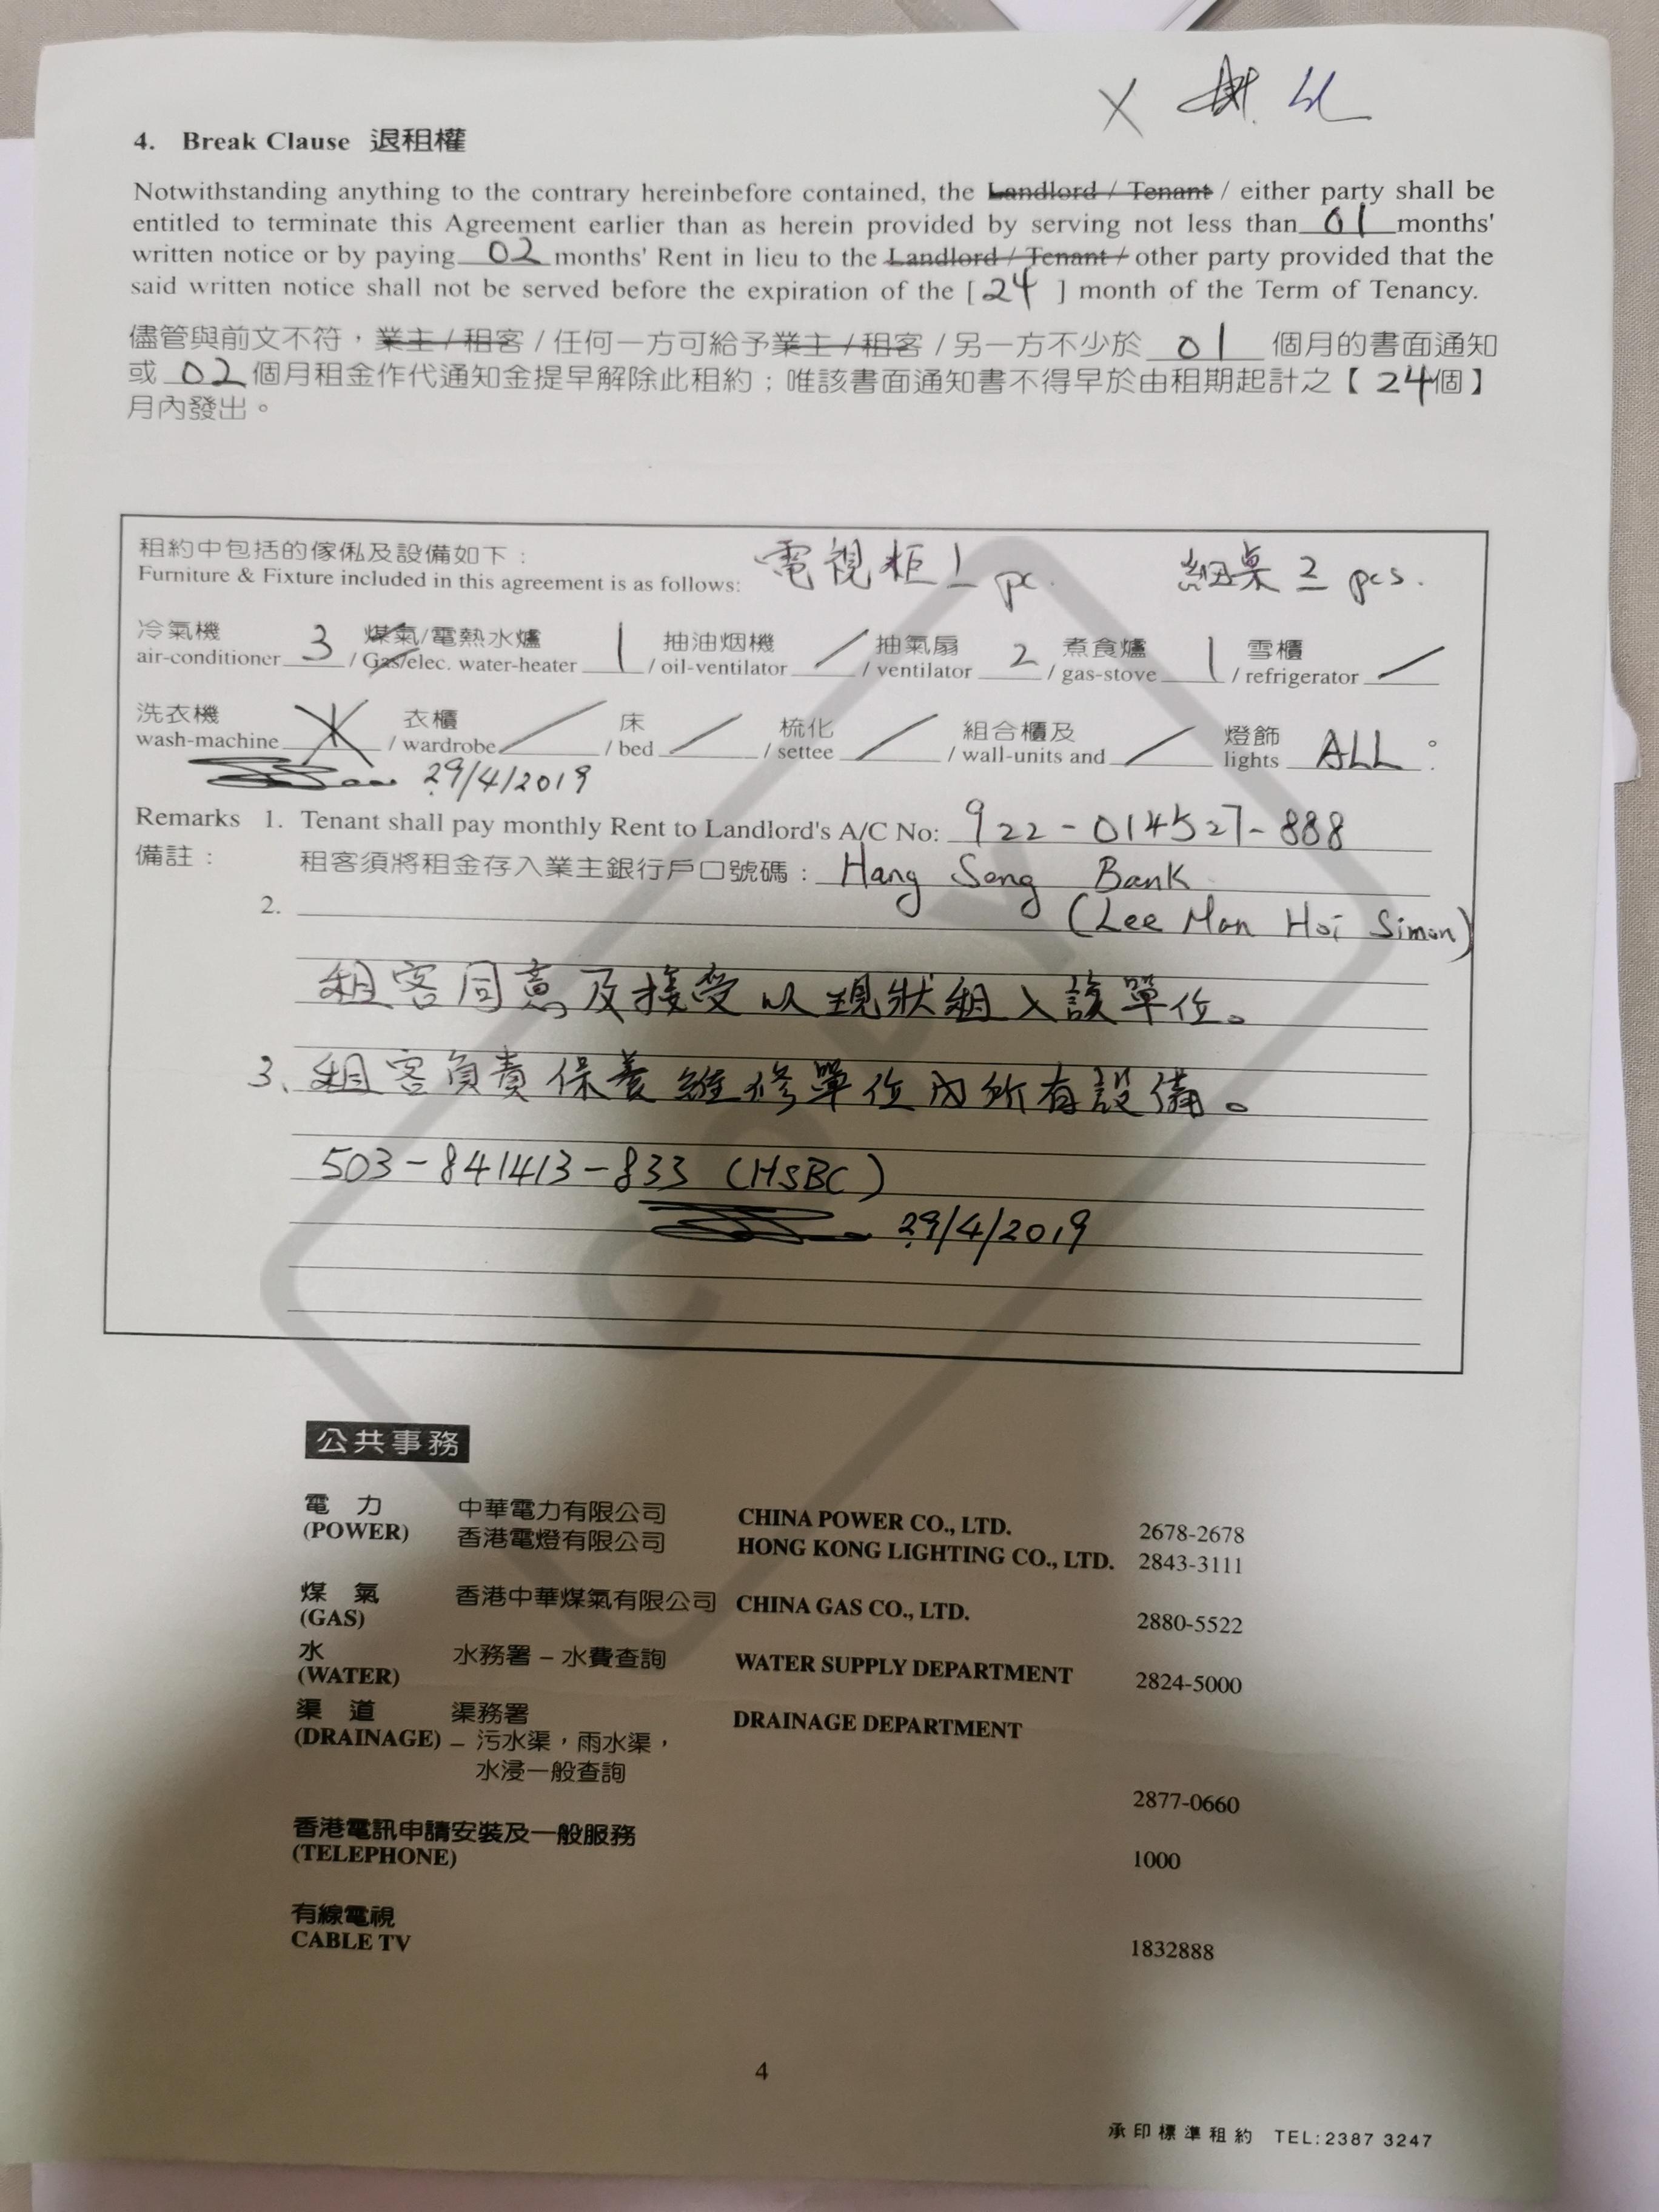 4. Break Clause 退租權
Notwithstanding anything to the contrary hereinbefore contained, the Landlord / Tenant / either party shall be
entitled to terminate this Agreement earlier than as herein provided by serving not less than 01 months'
written notice or by paying 02 months' Rent in lieu to the Landlord / Tenant / other party provided that the
said written notice shall not be served before the expiration of the [ 24 ] month of the Term of Tenancy.
儘管與前文不符，業主 / 租客 / 任何一方可給予業主 / 租客 / 另一方不少於 01 個月的書面通知
或 02 個月租金作代通知金提早解除此租約；唯該書面通知書不得早於由租期起計之【 24個】
月內發出。
租約中包括的傢俬及設備如下： 電視柜 1 pc. 組桌 2 pcs.
Furniture & Fixture included in this agreement is as follows:
冷氣機 煤氣/電熱水爐 抽油烟機 抽氣扇 煮食爐 雪櫃
air-conditioner 3 / Gas/elec. water-heater 1 / oil-ventilator / / ventilator 2 / gas-stove 1 / refrigerator /
洗衣機 衣櫃 床 梳化 組合櫃及 燈飾
wash-machine X / wardrobe / / bed / / settee / / wall-units and / lights ALL 。
29/4/2019
Remarks 1. Tenant shall pay monthly Rent to Landlord's A/C No: 922-014527-888
備註： 租客須將租金存入業主銀行戶口號碼： Hang Seng Bank
2. (Lee Man Hoi Simon)
租客同意及接受以現狀租入該單位。
3、租客負責保養維修單位內所有設備。
503-841413-833 (HSBC)
29/4/2019
COPY
公共事務
電 力 中華電力有限公司 CHINA POWER CO., LTD. 2678-2678
(POWER) 香港電燈有限公司 HONG KONG LIGHTING CO., LTD. 2843-3111
煤 氣 香港中華煤氣有限公司 CHINA GAS CO., LTD. 2880-5522
(GAS)
水 水務署 – 水費查詢 WATER SUPPLY DEPARTMENT 2824-5000
(WATER)
渠 道 渠務署 DRAINAGE DEPARTMENT
(DRAINAGE) – 污水渠，雨水渠，
水浸一般查詢 2877-0660
香港電訊申請安裝及一般服務
(TELEPHONE) 1000
有線電視
CABLE TV 1832888
4
承印標準租約 TEL:2387 3247